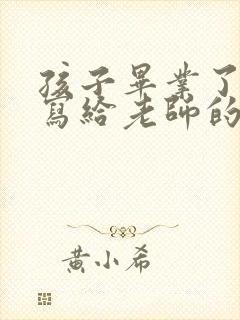 孩子畢業了
寫給老師的
黃小希